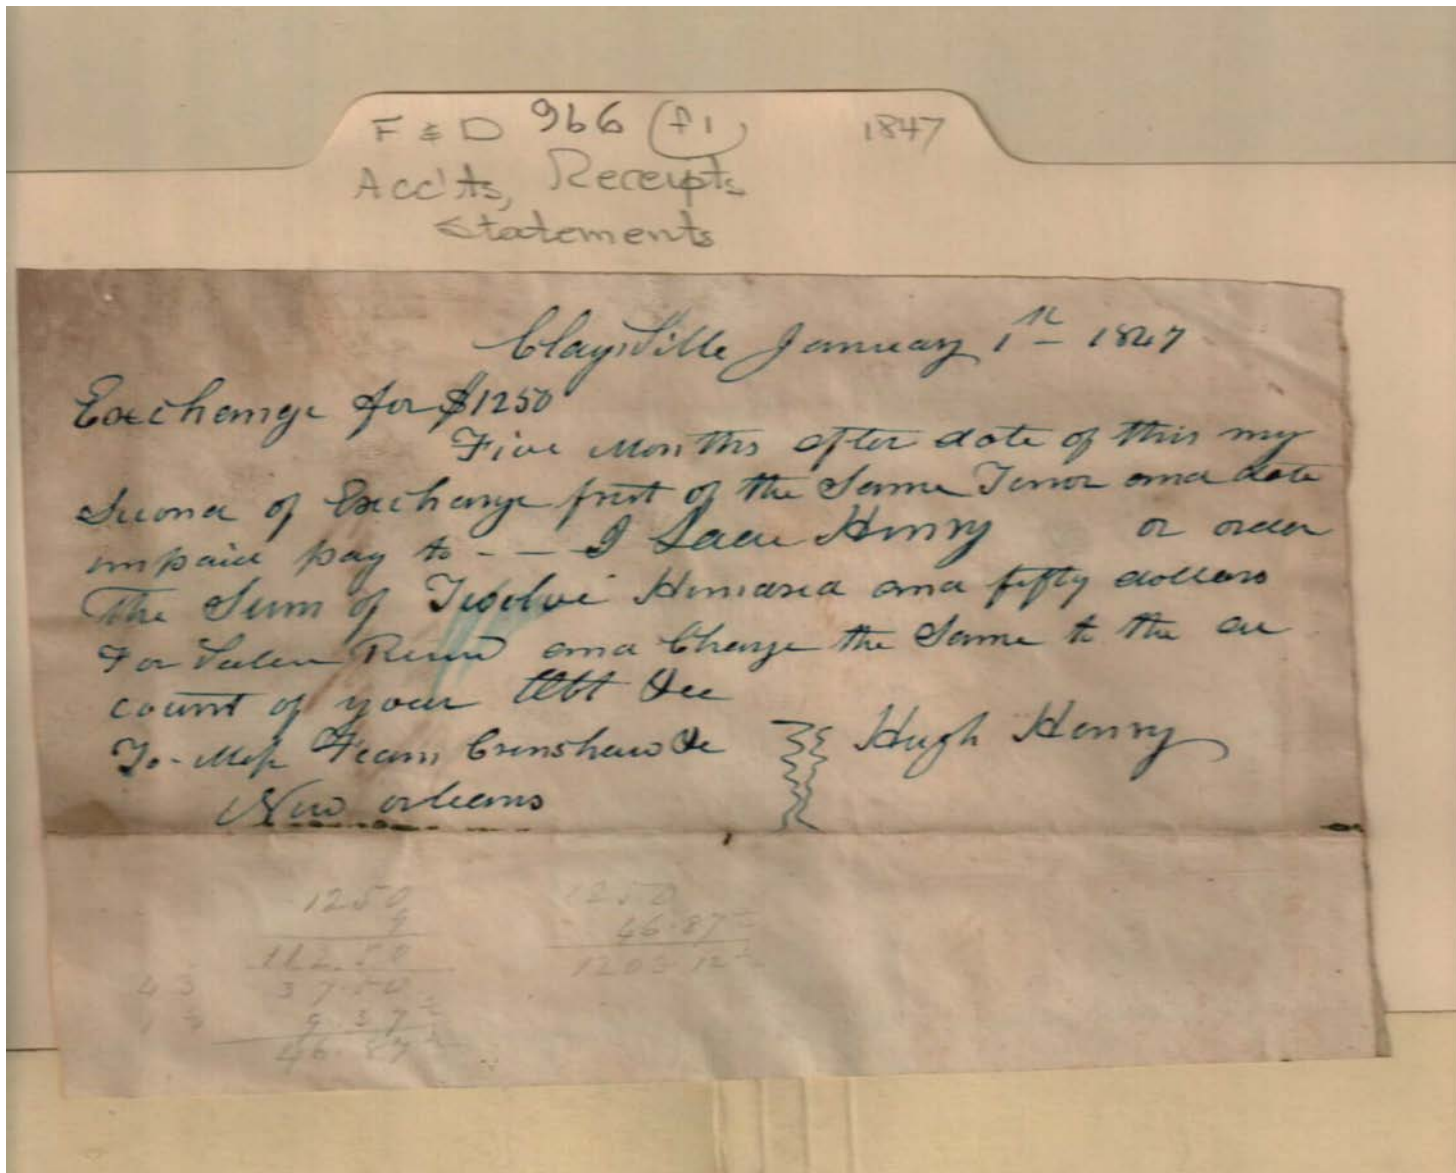 F & D 966 (f1) 1847
Acc'ts, Receipts
Statements
Claysville January 1st 1847
Exchange for $1250
Five Months after date of this my
Second of Exchange first of the Same Tenor and date
unpaid pay to - - Isaac Henry or order
The Sum of Twelve Hundred and fifty dollars
For Value and Charge the Same to the ac
count of your Obt
To - Mess Fearn Crenshaw & Hugh Henry
New orleans
1250 1250
9 46.87½
112.50 1203.12½
37.50
9.37½
46.87½